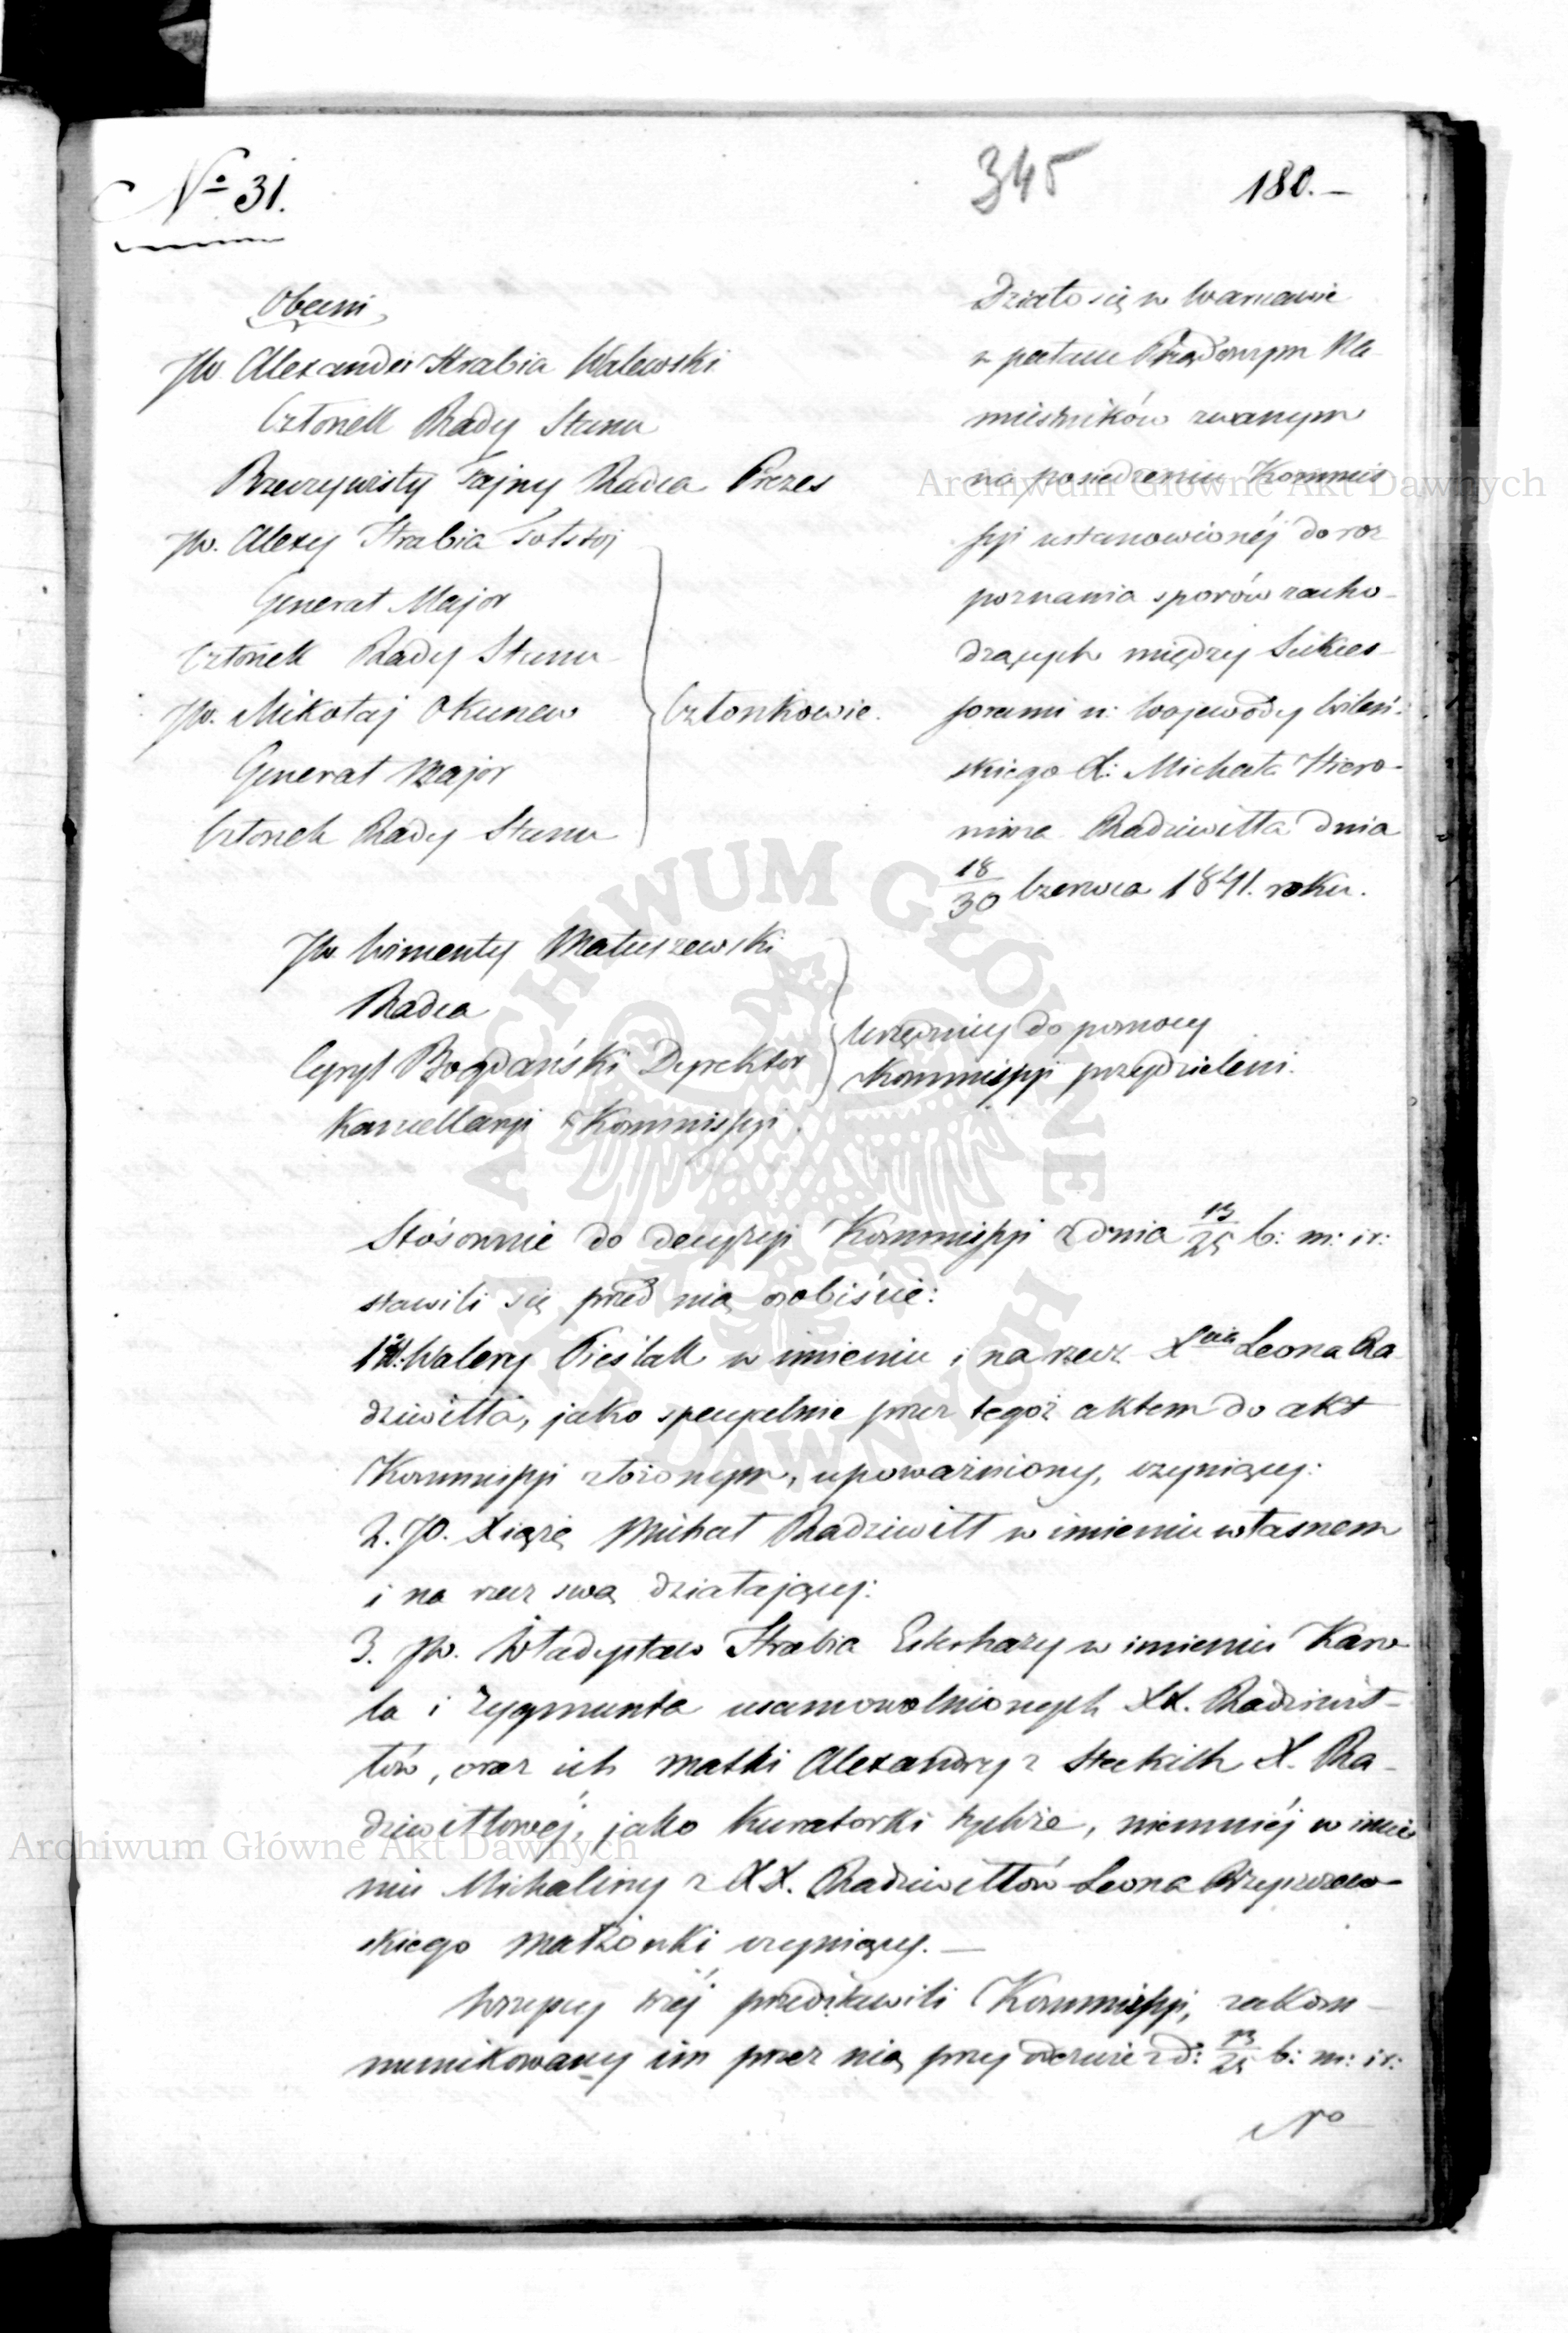 No 31.
345
180.—
Obecni
JW. Alexander Hrabia Walewski
Członek Rady Stanu
Rzeczywisty Tajny Radca Prezes
JW. Alexy Hrabia Tołstoj
Generał Major
Członek Rady Stanu
JW. Mikołaj Okunew
Generał Major
Członek Rady Stanu
Członkowie.
Działo się w Warszawie
w pałacu Rządowym Na
miestników zwanym
na posiedzeniu Kommis
syi ustanowionéj do roz
poznania sporów zacho-
dzących między Sukces-
sorami n: Wojewody Wileń-
skiego X: Michała Hiero-
nima Radziwiłła dnia
18/30 Czerwca 1841. roku.
JW. Wincenty Matuszewski
Radca
Cyryl Bogdański Dyrektor
Kancellaryi Kommissyi.
Urzędnicy do pomocy
Kommissyi przydzieleni.
Stósownie do decyzyi Kommissyi z dnia 13/25 b: m: i r:
stawili się przed nią osobiście:
1. W: Walery Cieślak w imieniu i na rzecz Xcia Leona Ra
dziwiłła, jako specyalnie przez tegoż aktem do akt
Kommissyi złożonym, upoważniony, czyniący:
2. JO. Xiąże Michał Radziwiłł w imieniu własnem
i na rzecz swą działający:
3. JW. Władysław Hrabia Esterhazy w imieniu Karo
la i Zygmunta usamowolnionych XX. Radziwił-
łów, oraz ich matki Alexandry z Steckich X. Ra-
dziwiłłowéj, jako kuratorki tychże, niemniéj w imie
niu Michaliny z XX. Radziwiłłów Leona Rzyszczew-
skiego małżonki czyniący.—
Wszyscy trzéj przedstawili Kommissyi, zakom-
munikowany im przez nią przy odezwie z d: 13/25 b: m: i r:
No
Archiwum Główne Akt Dawnych
Archiwum Główne Akt Dawnych
ARCHIWUM GŁÓWNE
AKT DAWNYCH